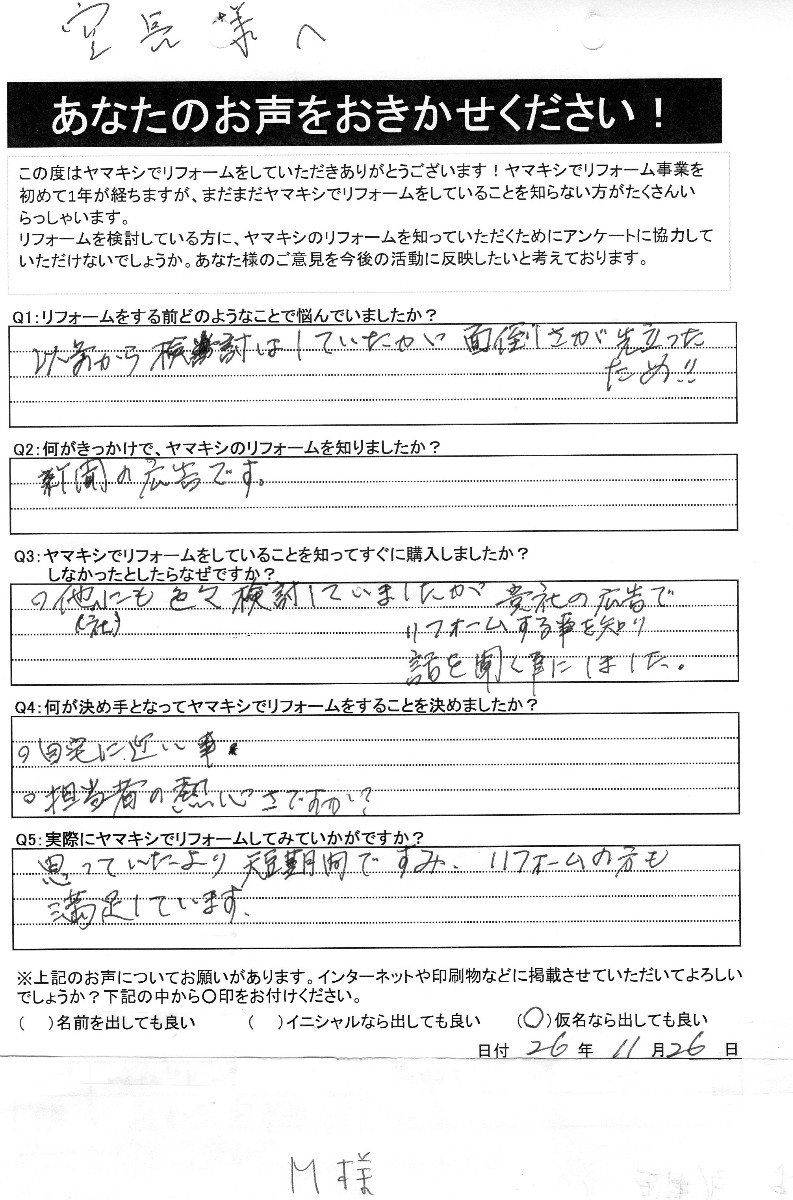 室長様へ
あなたのお声をおきかせください！
この度はヤマキシでリフォームをしていただきありがとうございます！ヤマキシでリフォーム事業を
初めて1年が経ちますが、まだまだヤマキシでリフォームをしていることを知らない方がたくさんい
らっしゃいます。
リフォームを検討している方に、ヤマキシのリフォームを知っていただくためにアンケートに協力して
いただけないでしょうか。あなた様のご意見を今後の活動に反映したいと考えております。
Q1：リフォームをする前どのようなことで悩んでいましたか？
以前から検討はしていたが 面倒さが先立った
ため!!
Q2：何がきっかけで、ヤマキシのリフォームを知りましたか？
新聞の広告です。
Q3：ヤマキシでリフォームをしていることを知ってすぐに購入しましたか？
しなかったとしたらなぜですか？
○他にも色々検討していましたが 貴社の広告で
(社)
リフォームする事を知り
話を聞く事にしました。
Q4：何が決め手となってヤマキシでリフォームをすることを決めましたか？
○自宅に近い事。
○担当者の熱心さですかい？
Q5：実際にヤマキシでリフォームしてみていかがですか？
思っていたより短期間ですみ、リフォームの方も
満足しています。
※上記のお声についてお願いがあります。インターネットや印刷物などに掲載させていただいてよろしい
でしょうか？下記の中から○印をお付けください。
（　）名前を出しても良い （　）イニシャルなら出しても良い （○）仮名なら出しても良い
日付 26 年 11 月 26 日
M様